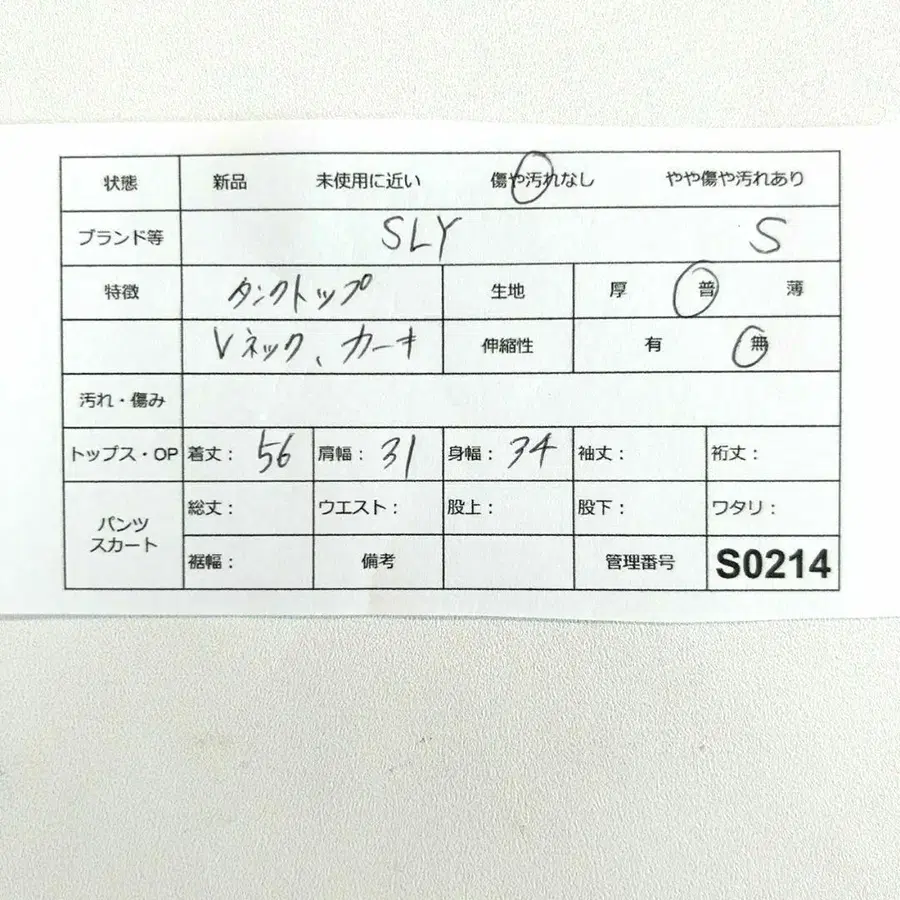 状態 新品 未使用に近い 傷や汚れなし やや傷や汚れあり
ブランド等 SLY S
特徴 タンクトップ 生地 厚 普 薄
Vネック、カーキ 伸縮性 有 無
汚れ・傷み
トップス・OP 着丈: 56 肩幅: 31 身幅: 34 袖丈: 裄丈:
パンツ スカート 総丈: ウエスト: 股上: 股下: ワタリ:
裾幅: 備考 管理番号 S0214